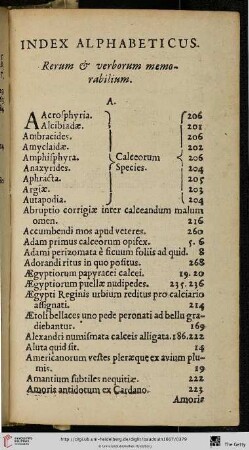 INDEX ALPHABETICUS.
Rerum & verborum memo-
rabilium.
A.
AAcrosphyria. 206
Alcibiadæ. 201
Ambracides. 206
Amyclaidæ. 202
Amphisphyra. Calceorum 206
Anaxyrides. Species. 204
Aphracta. 205
Argiæ. 203
Autapodia. 204
Abruptio corrigiæ inter calceandum malum
omen. 216
Accumbendi mos apud veteres. 260
Adam primus calceorum opifex. 5. 6
Adami perizomata è ficuum foliis ad quid. 8
Adorandi ritus in quo positus. 268
Ægyptiorum papyracei calcei. 19. 20
Ægyptiorum puellæ nudipedes. 235. 236
Ægypti Reginis urbium reditus pro calciario
assignati. 214
Ætoli bellaces uno pede peronati ad bellu gra-
diebantur. 169
Alexandri numismata calceis alligata. 186. 212
Aluta quid sit. 16
Americanorum vestes pleræque ex avium plu-
mis. 19
Amantium subtiles nequitiæ. 222
Amoris antidotum ex Cardano. 223
Amoris
http://digi.ub.uni-heidelberg.de/diglit/balduin1667/0379
© Universitätsbibliothek Heidelberg
The Getty